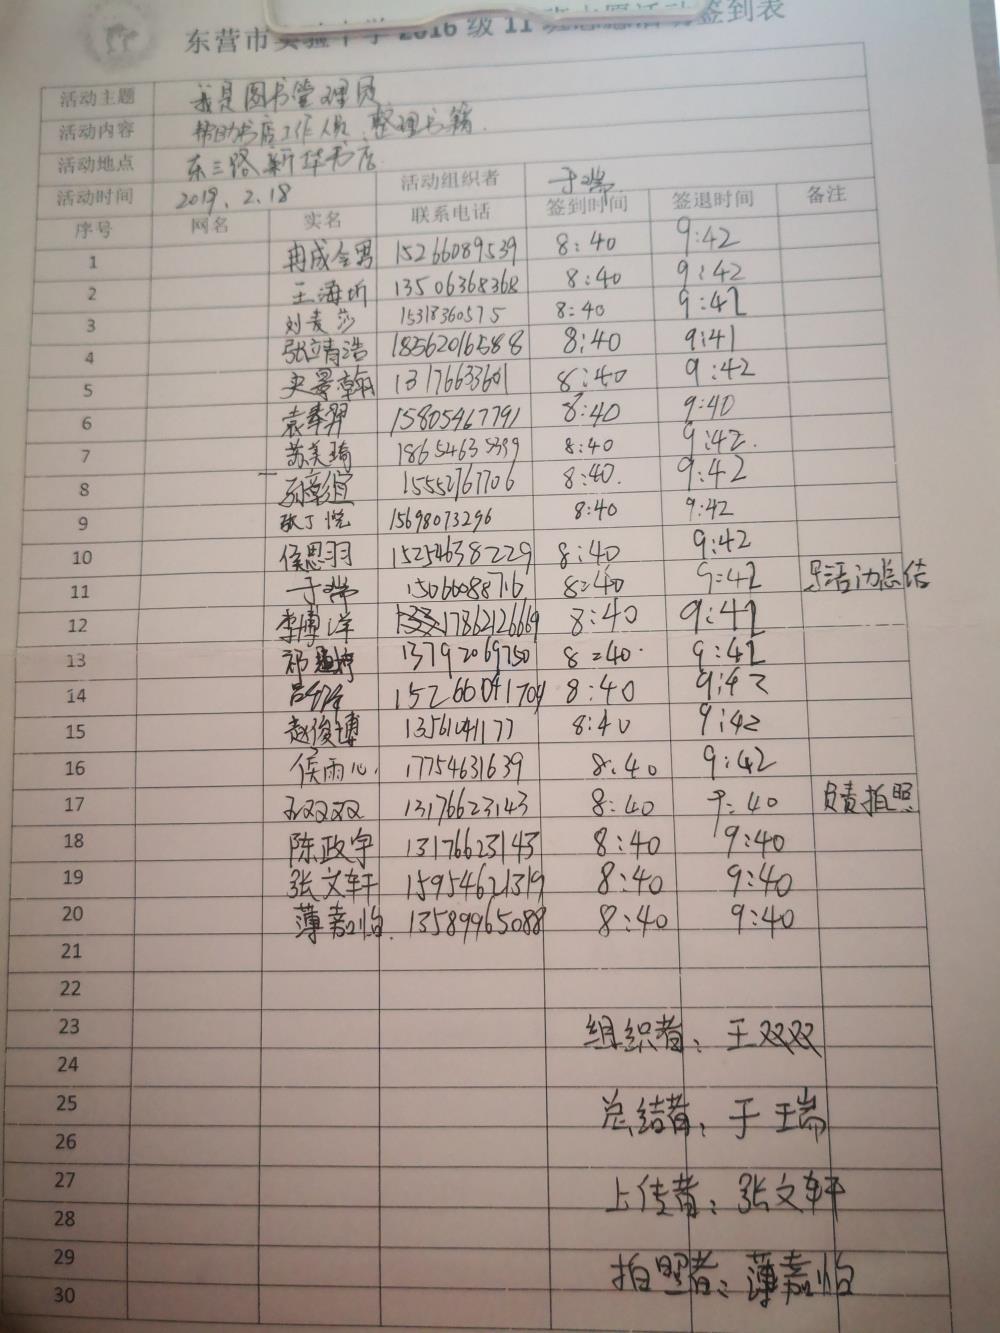 东营市实验中学 2016 级 11 班志愿活动签到表
活动主题 我是图书管理员
活动内容 帮助书店工作人员、整理书籍.
活动地点 东三路新华书店
活动时间 2019.2.18 活动组织者 于瑞
序号 网名 实名 联系电话 签到时间 签退时间 备注
1 冉成全男 15266089539 8:40 9:42
2 王海圻 13506368368 8:40 9:42
3 刘麦莎 15318360575 8:40 9:42
4 张靖浩 18562016588 8:40 9:41
5 史景翰 13176633601 8:40 9:42
6 15805467791 8:40 9:40
7 苏美琦 18654635399 8:40 9:42.
8 15552767706 8:40. 9:42
9 张丁悦 15698073296 8:40 9:42
10 侯思羽 15254638229 8:40 9:42
11 于瑞 15066088716 8:40 9:42 写活动总结
12 李博洋 17862126669 8:40 9:42
13 祁 13792069750 8:40 9:42
14 吕 15266041704 8:40 9:42
15 赵俊博 13561041177 8:40 9:42
16 侯雨心. 17754631639 8:40 9:42
17 双双 13176623143 8:40 9:40 负责拍照
18 陈政宇 13176623143 8:40 9:40
19 张文轩 15954621319 8:40 9:40
20 薄嘉怡. 13589965088 8:40 9:40
21
22
23 组织者：王双双
24
25 总结者：于瑞
26
27 上传者：张文轩
28
29 拍照者：薄嘉怡
30